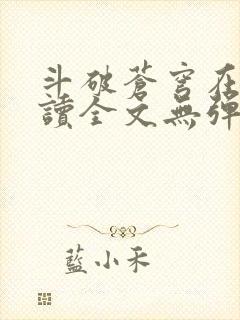 斗破蒼穹在
讀全文無彈
藍小禾